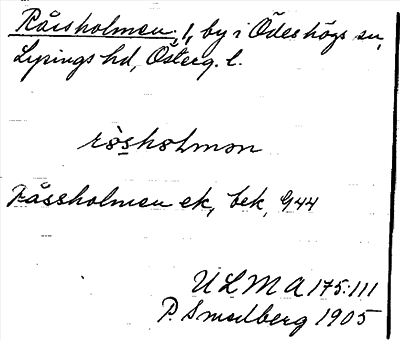 Råssholmen, 1, by i Ödeshögs sn,
Lysings hd, Österg. l.
ròsholmən
Råssholmen ek, bek, 944
ULMA 175:111
P. Smedberg 1905